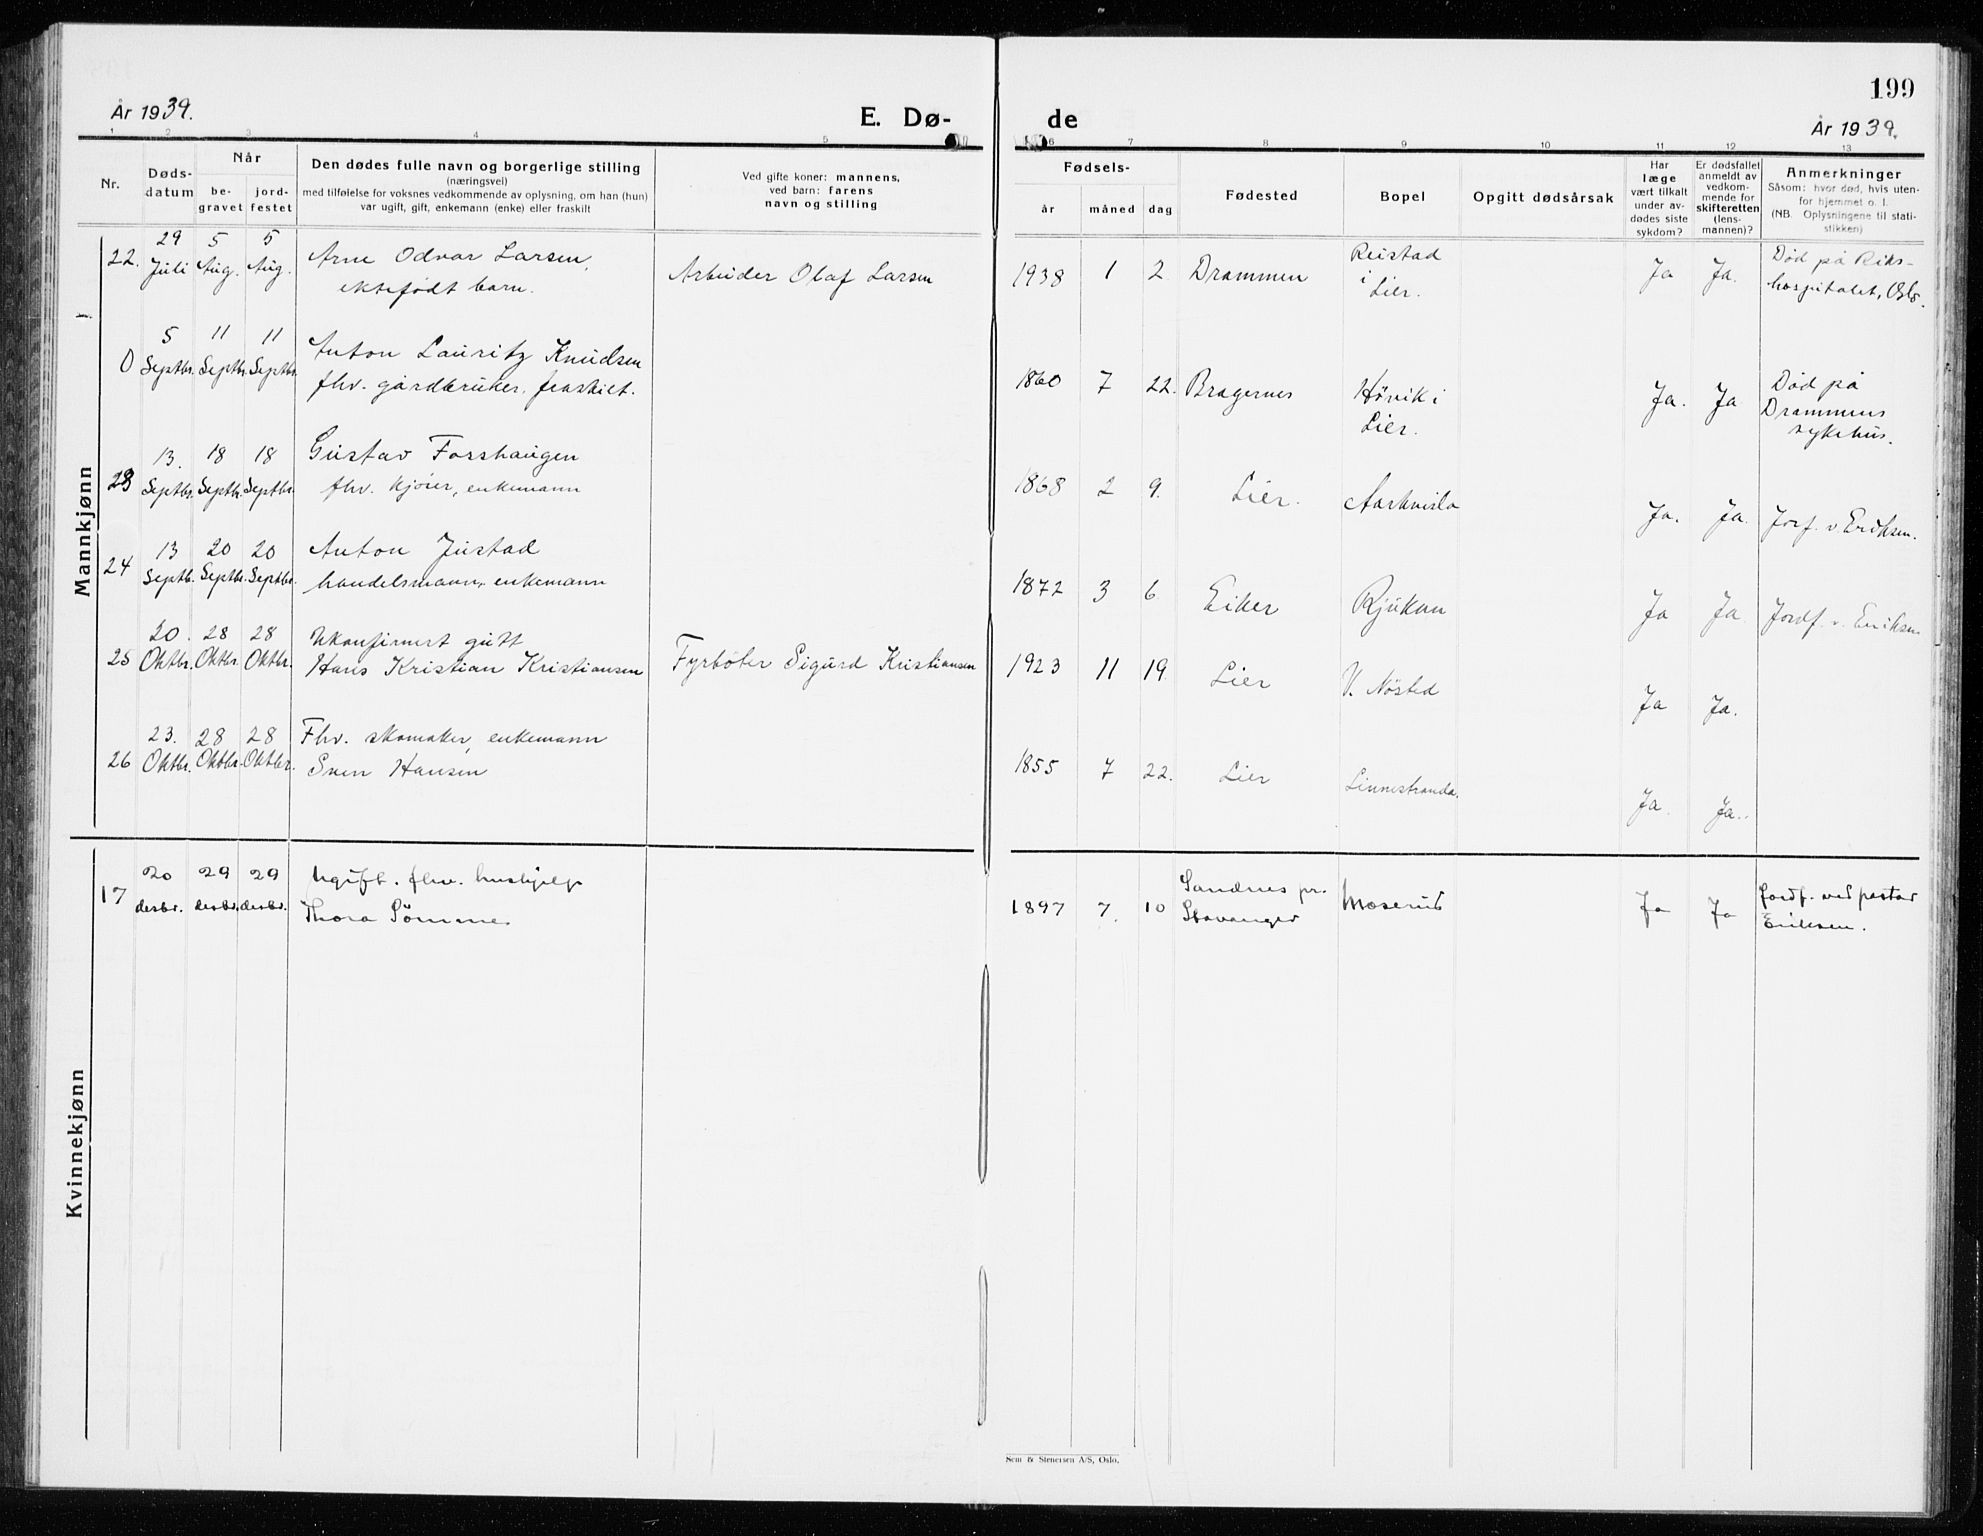 199
År 1939.
E. Dø-
de
År 1939.
1 2 3 4 5 6 7 8 9 10 11 12 13
Nr.
Døds-
datum
Når
be-
gravet
jord-
festet
Den dødes fulle navn og borgerlige stilling
(næringsvei)
med tilføielse for voksnes vedkommende av oplysning, om han (hun)
var ugift, gift, enkemann (enke) eller fraskilt
Ved gifte koner: mannens,
ved barn: farens
navn og stilling
Fødsels-
år
måned
dag
Fødested
Bopel
Opgitt dødsårsak
Har
læge
vært tilkalt
under av-
dødes siste
sykdom?
Er dødsfallet
anmeldt av
vedkom-
mende for
skifteretten
(lens-
mannen)?
Anmerkninger
Såsom: hvor død, hvis uten-
for hjemmet o. l.
(NB. Oplysningene til stati-
stikken)
Mannkjønn
22. 29 Juli 5 Aug. 5 Aug.
Arne Odvar Larsen,
ektefødt barn.
Arbeider Olaf Larsen
1938 1 2 Drammen
Reistad
i
Lier.
Ja Ja.
Død på Riks-
hospitalet, Oslo.
0 5 Septbr. 11 Septbr. 11 Septbr.
Anton Lauritz Knudsen
fhv. gårdbruker, fraskilt.
1860 7 22. Bragernes
Høvik i
Lier.
Ja. Ja
Død på
Drammens
sykehus.
23 13. Septbr. 18 Septbr. 18 Septbr.
Gustav Forshaugen
fhv. kjører, enkemann
1868 2 9. Lier.
Ja. Ja. Jorf. v Eriksen.
24 13 Septb. 20 Septbr. 20 Septbr.
Anton Justad
handelsmann, enkemann
1872 3 6 Eiker Rjukan
Ja Ja. Jordf. v. Eriksen
25 20. Oktbr. 28 Oktbr. 28 Oktbr.
Ukonfirmert gutt
Hans Kristian Kristiansen
Fyrbøter Sigurd Kristiansen
1923 11 19. Lier V. Nøsted
Ja Ja.
26 23. Oktbr. 28 Oktbr. 28 Oktbr.
Fhv. skomaker, enkemann
Sven Hansen
1855 7 22. Lier Linnestranda.
Ja. Ja.
Kvinnekjønn
17 20 desbr. 29 desbr. 29 desbr.
Ugift. fhv. hushjelp
Thora Sömme
1897 7. 10
Sandnes pr.
Stavanger
Moserud
Ja Ja
Jordf. ved pastor
Eriksen.
Sem & Stenersen A/S, Oslo.